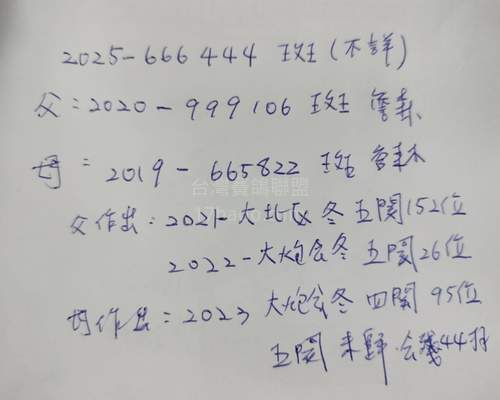 2025-666444 斑(不詳)
父:2020-999106 斑 詹森
母:2019-665822 斑 詹森
父作出:2021-大北区 冬 五関152位
2022-大炮会冬 五関26位
母作出:2023 大炮会冬 四関 95位
五関 未歸 会残44羽
台灣賽鴿聯盟